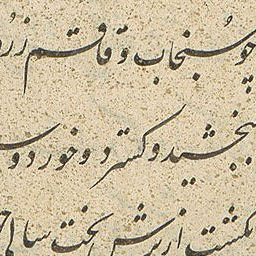 چو سنجاب و قاقم ز رو
ببخشید و کسترد و خورد و س
بگشت از برش سالی